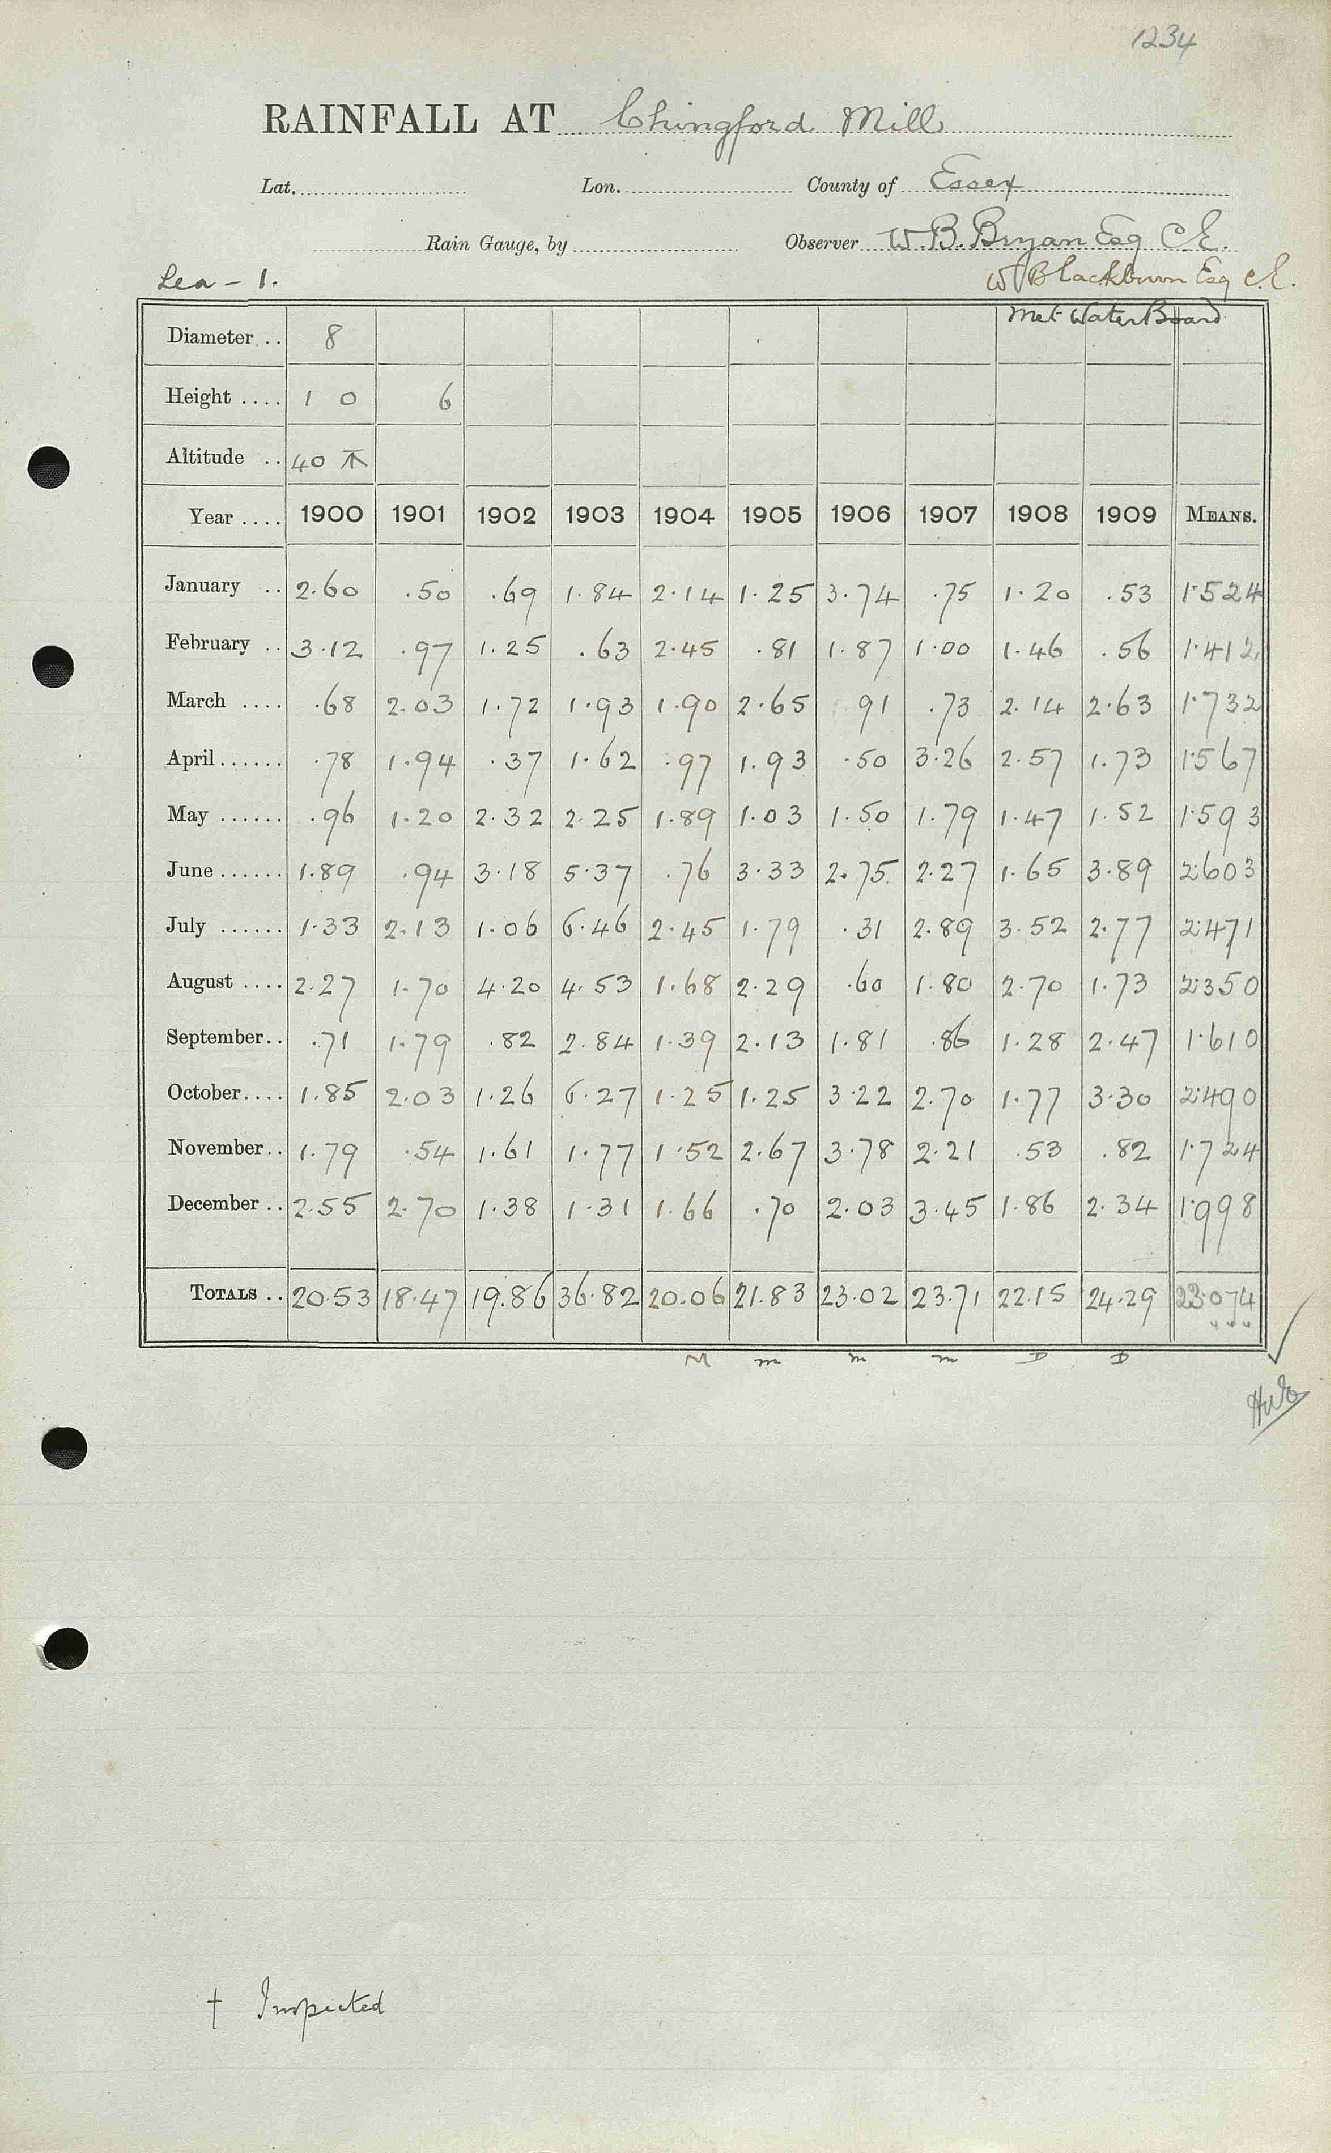 1234
RAINFALL AT Chingford Mill
Lat. Lon. County of Essex
Rain Gauge, by Observer W. B. Bryan Esq C.E.
Lea - 1. W Blackburn Esq C.E.
Met Water Board
Diameter .. 8
Height .... 1 0 6
Altitude .. 40
Year .... 1900 1901 1902 1903 1904 1905 1906 1907 1908 1909 MEANS.
January .. 2.60 .50 .69 1.84 2.14 1.25 3.74 .75 1.20 .53 1.524
February .. 3.12 .97 1.25 .63 2.45 .81 1.87 1.00 1.46 .56 1.412
March .... .68 2.03 1.72 1.93 1.90 2.65 91 .73 2.14 2.63 1.732
April ...... .78 1.94 .37 1.62 .97 1.93 .50 3.26 2.57 1.73 1.567
May ...... .96 1.20 2.32 2.25 1.89 1.03 1.50 1.79 1.47 1.52 1.593
June ...... 1.89 .94 3.18 5.37 .76 3.33 2.75 2.27 1.65 3.89 2.603
July ...... 1.33 2.13 1.06 6.46 2.45 1.79 .31 2.89 3.52 2.77 2.471
August .... 2.27 1.70 4.20 4.53 1.68 2.29 .60 1.80 2.70 1.73 2.350
September.. .71 1.79 .82 2.84 1.39 2.13 1.81 .86 1.28 2.47 1.610
October.... 1.85 2.03 1.26 6.27 1.25 1.25 3.22 2.70 1.77 3.30 2.490
November.. 1.79 .54 1.61 1.77 1.52 2.67 3.78 2.21 .53 .82 1.724
December .. 2.55 2.70 1.38 1.31 1.66 .70 2.03 3.45 1.86 2.34 1.998
TOTALS .. 20.53 18.47 19.86 36.82 20.06 21.83 23.02 23.71 22.15 24.29 23.074
M m m m D D
† Inspected